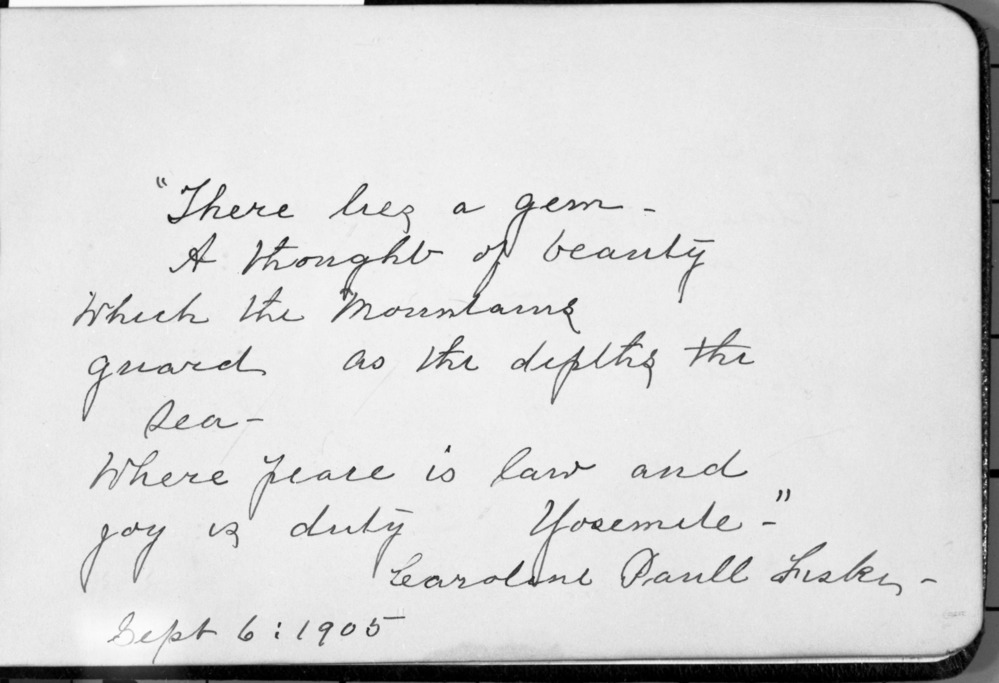 "There lies a gem -
A thought of beauty
Which the Mountains
guard as the depths the
sea -
Where peace is law and
joy is duty Yosemite -"
Caroline Paull Fiske -
Sept 6 : 1905